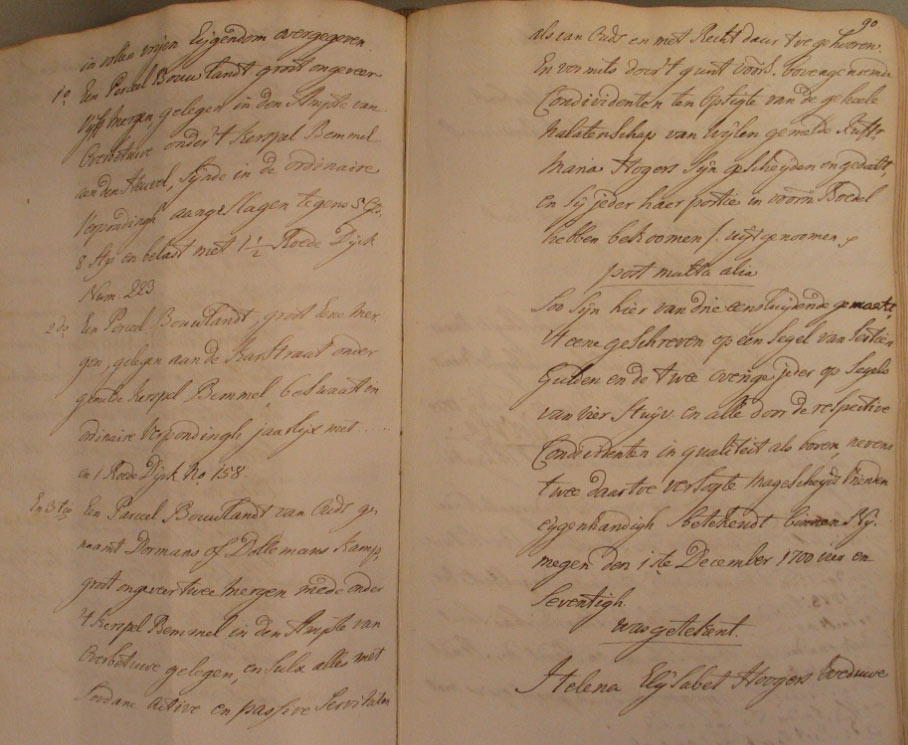 in vollen vrijen Eijgendom overgegeven
1o Een Perceel Bouwlandt groot ongeveer
vijff mergen, gelegen in den Ampte van
Overbetuwe onder 't Kerspel Bemmel
aan den Heuvel, sijnde in de ordinaire
Verpondingh aangeslagen tegens 5 G.
8 St en belast met 1 1/2 Roede Dijck
Num. 223
2do Een Perceel Bouwlandt, groot eene mer
gen, gelegen aan de Karstraat onder
gemelte Kerspel Bemmel, beswaart in
ordinaire Verpondingh jaarlijx met ....
en 1 Roede Dijck No 158.
En 3tio Een Parceel Bouwlandt van Ouds ge
naamt Dormans of Dollemans Kamp,
groot ongeveer twee mergen mede onder
't Kerspel Bemmel in den Ampte van
Overbetuwe gelegen, en sulx alles met
sodane active en passive Servituten
90
als van Ouds en met Recht daar toe gehooren.
En vermits door 't gunt voors. bovengenoemde
Condividenten ten opsigte van de geheele
nalatenschap van wijlen gemelde Juffr
Maria Hogers sijn gescheyden en gedeelt,
en sij jeder haer portie in voorn Boedel
hebben bekoomen /. uijtgenoomen
post multa alia
Soo sijn hier van drie eensluijdende gemaekt,
't eene geschreven op een Segel van
Gulden en de twee overige jeder op Segels
van vier Stuijv. en alle door de respective
Condividenten in qualiteit als voren, nevens
twee daartoe versogte Magescheyds vrienden
eygenhandigh betekendt binnen Nij-
megen den 1ste December 1700 vier en
Seventigh.
was getekent.
Helena Elisabet Hoogers Weduwe